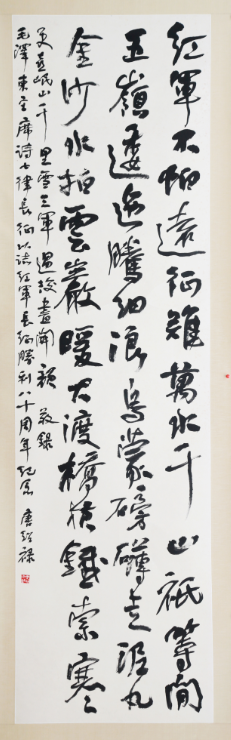 紅軍不怕遠征難萬水千山祇等閒
五嶺逶迤騰細浪烏蒙磅礴走泥丸
金沙水拍雲巖暖大渡橋橫鐵索寒
更喜岷山千里雪三軍過後盡開顏 敬錄
毛澤東主席詩七律長征以誌紅軍長征勝利八十周年紀念 唐